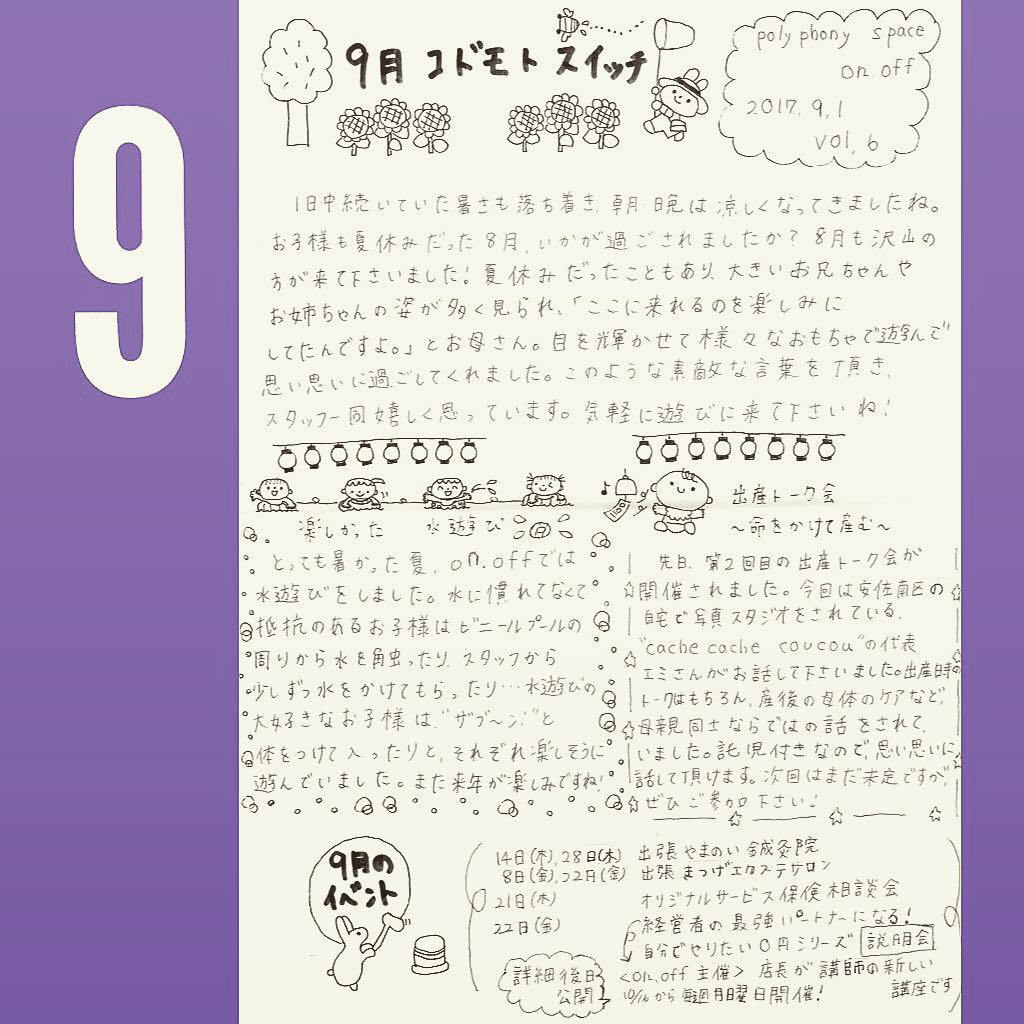 9
9月 コドモト スイッチ
polyphony space
on off
2017. 9. 1
vol. 6
1日中続いていた暑さも落ち着き、朝・晩は涼しくなってきましたね。
お子様も夏休みだった8月、いかが過ごされましたか？8月も沢山の
方が来て下さいました！夏休みだったこともあり、大きいお兄ちゃんや
お姉ちゃんの姿が多く見られ、「ここに来れるのを楽しみに
してたんですよ。」とお母さん。目を輝かせて様々なおもちゃで遊んで
思い思いに過ごしてくれました。このような素敵な言葉を頂き、
スタッフ一同嬉しく思っています。気軽に遊びに来て下さいね！
楽しかった 水遊び
とっても暑かった夏、on.offでは
水遊びをしました。水に慣れてなくて
抵抗のあるお子様はビニールプールの
周りから水を触ったり、スタッフから
少しずつ水をかけてもらったり…水遊びの
大好きなお子様は、"ザブ〜ン"と
体をつけて入ったりと、それぞれ楽しそうに
遊んでいました。また来年が楽しみですね！
出産トーク会
〜命をかけて産む〜
先日、第2回目の出産トーク会が
開催されました。今回は安佐南区の
自宅で写真スタジオをされている、
"cache cache coucou"の代表
エミさんがお話して下さいました。出産日時の
トークはもちろん、産後の母体のケアなど、
母親同士ならではの話をされて、
いました。託児付きなので、思い思いに
話して頂けます。次回はまだ未定ですが、
ぜひご参加下さい！
9月の
イベント
14日(木)、28日(木) 出張やまのい鍼灸院
8日(金)、22日(金) 出張まつげエクステサロン
21日(木) オリジナルサービス保険相談会
22日(金) 経営者の最強パートナーになる！
自分でやりたい0円シリーズ 説明会
詳細後日
公開！
<on.off主催> 店長が講師の新しい
講座です
から毎週月曜日開催！